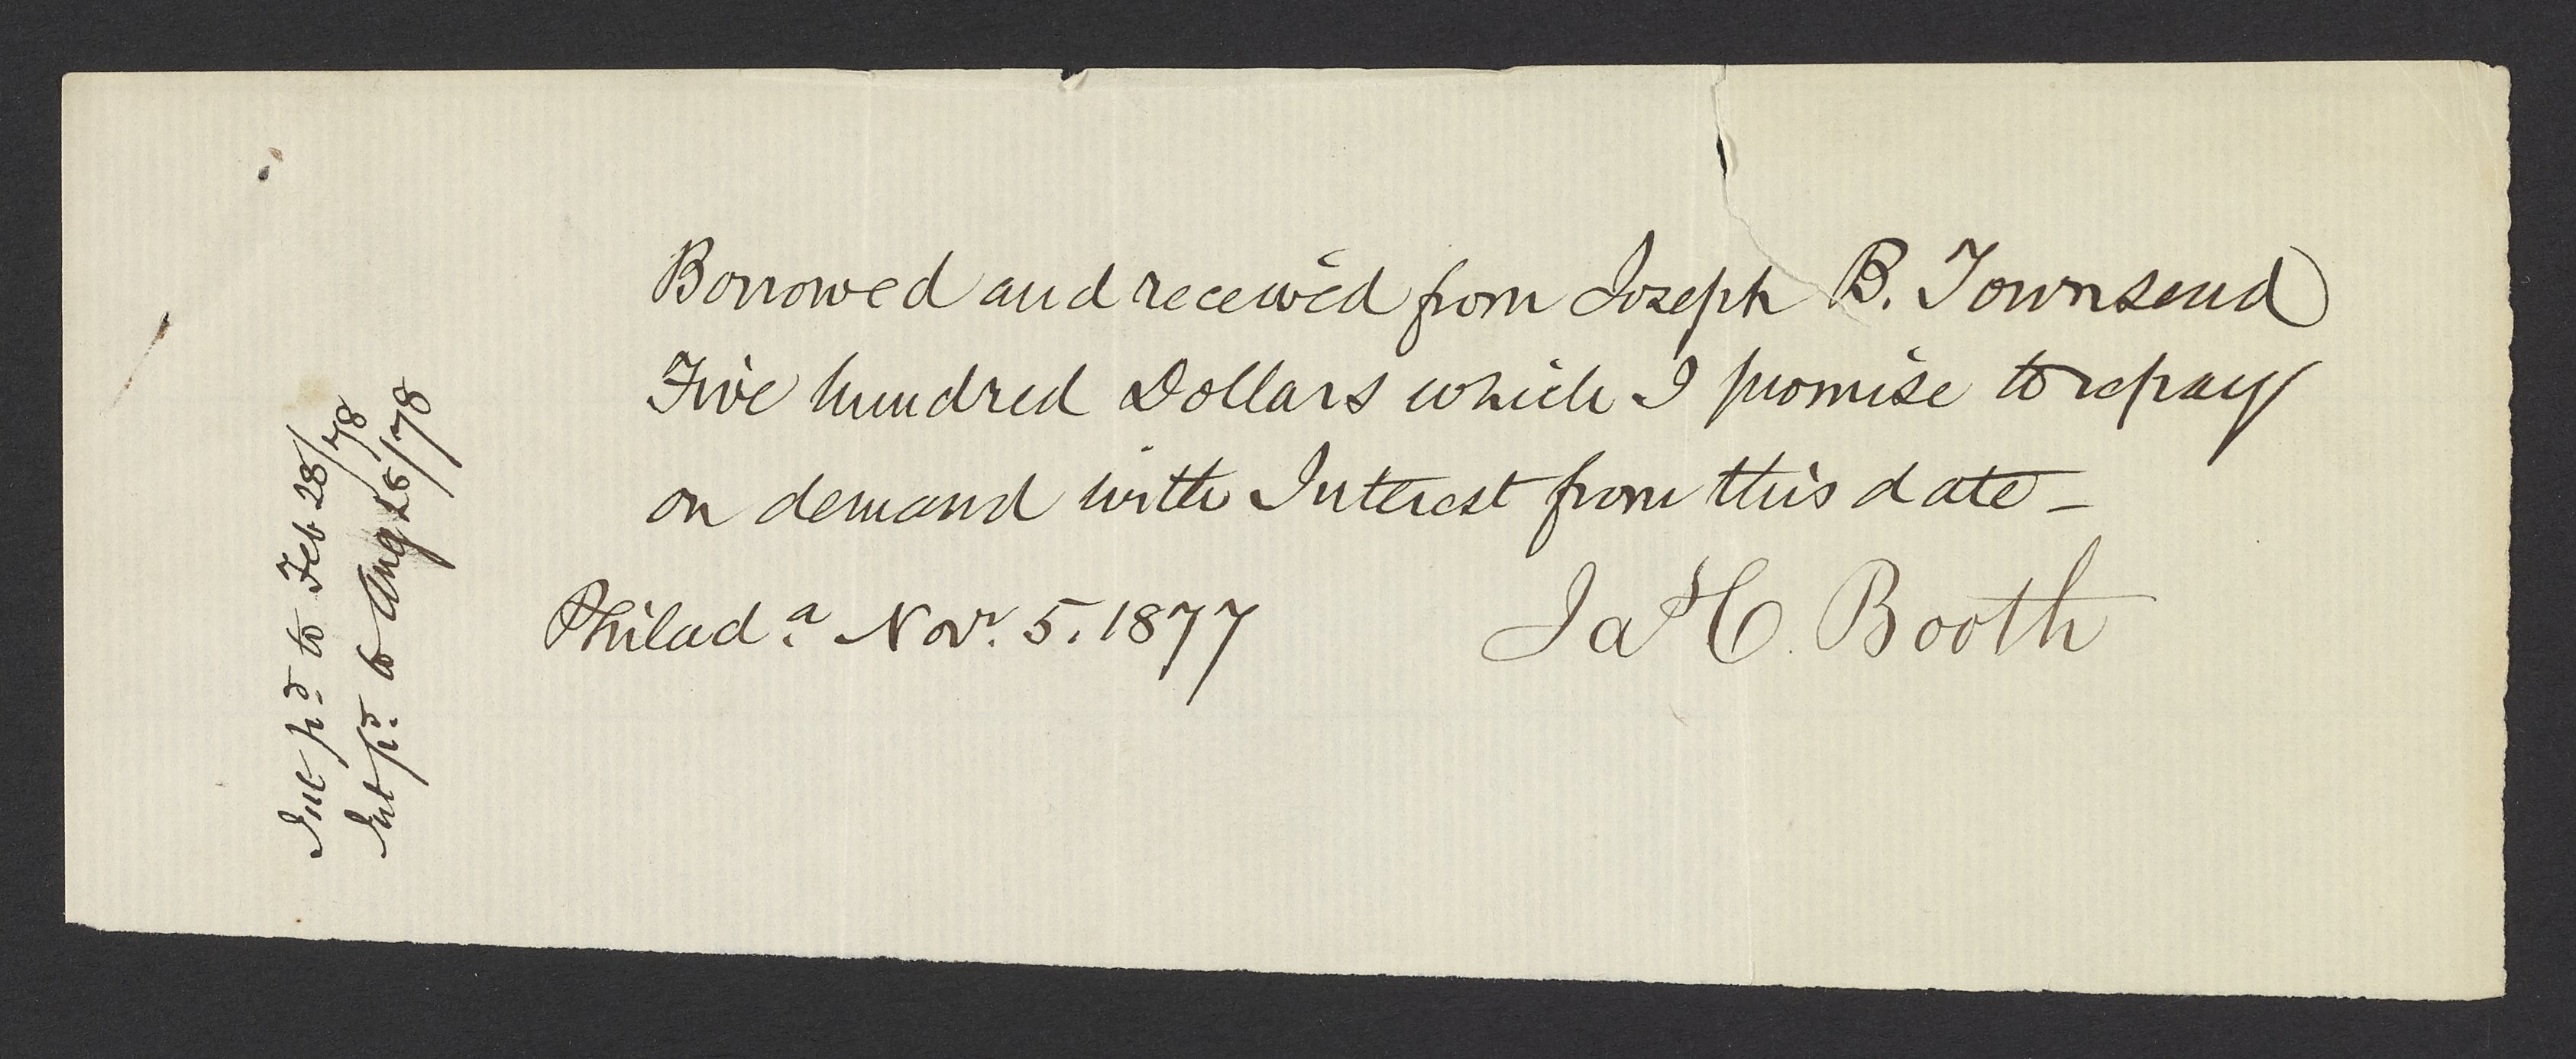 Borrowed and received from Joseph B. Townsend
Five hundred Dollars which I promise to repay
on demand with Interest from this date –
Philada. Novr. 5. 1877
Jas C. Booth
Int pd. to Feb 28/78
Int pd. to Aug 28/78